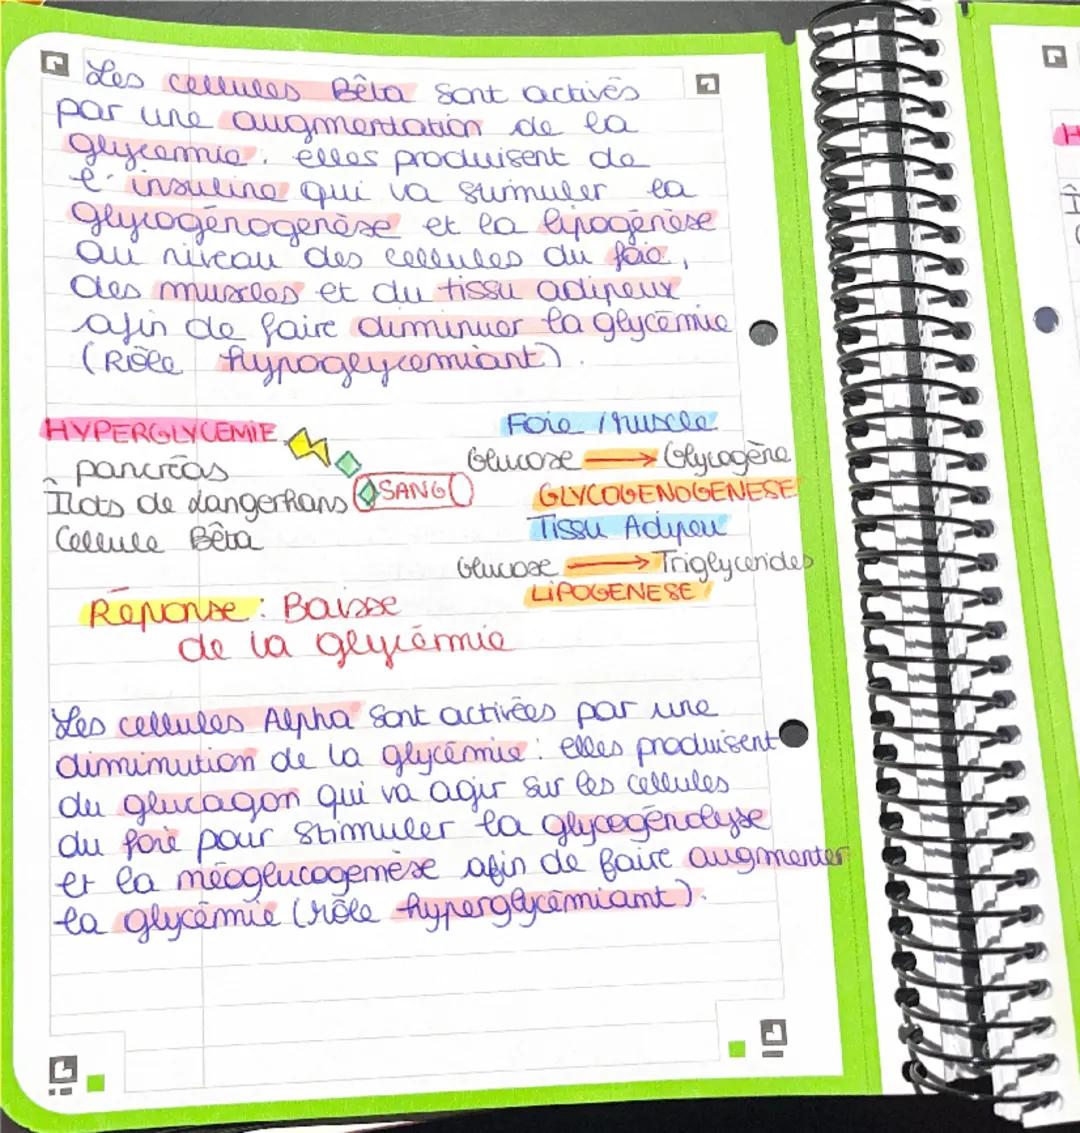 Les cellules Bêta sont activés
par une augmentation de la
glycemie. elles produisent de
l'insuline qui va stimuler la
glycogénogenèse et la lipogénèse
au niveau des cellules du foie,
des muscles et du tissu adipeux
afin de faire diminuer la glycémie
(Rôle hypoglycemiant).
HYPERGLYCEMIE
pancréas
Îlots de Langerhans
Cellule Bêta
SANG
Foie / Muscle
Glucose → Glycogène
GLYCOGENOGENESE
Tissu Adipeu
Glucose → Triglycerides
LIPOGENESE
Réponse : Baisse
de la glycémie
Les cellules Alpha sont activées par une
dimimution de la glycémie : elles produisent
du glucagon qui va agir sur les cellules
du foie pour stimuler la glycogénolyse
et la néoglucogenèse afin de faire augmenter
la glycémie (rôle hyperglycémiant).
H